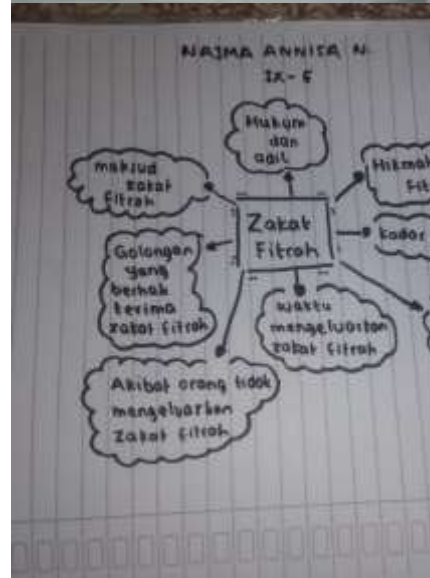 NAJMA ANNISA N.
IX - 6
Hukum
dan
adil
maksud
zakat
Fitrah
Hikmah
Fit
Zakat
Fitrah
kadar
Golongan
yang
berhak
terima
zakat fitrah
waktu
mengeluarkan
zakat fitrah
Akibat orang tidak
mengeluarkan
zakat fitrah